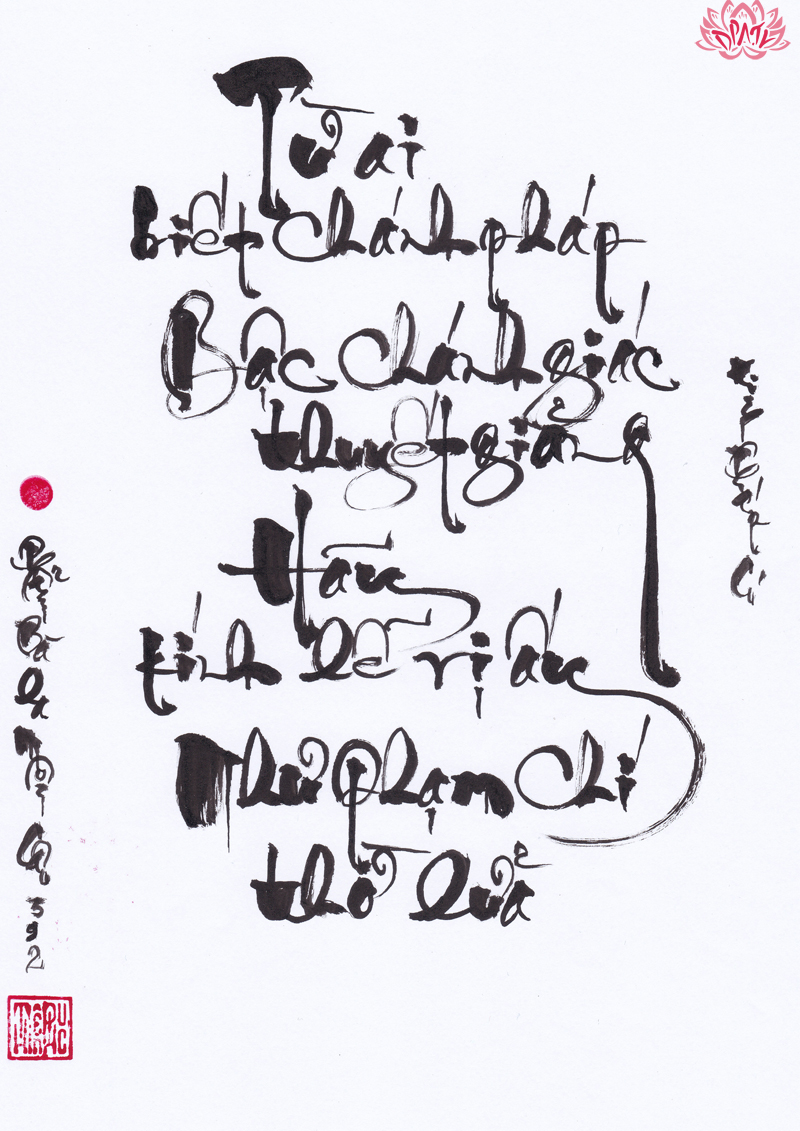 Từ ai
Biết chánh pháp
Bậc chánh giác
thuyết giảng
Hãy
kính lễ vị ấy
Như phạm chí
thờ lửa
Kinh Pháp Cú
Phẩm Bà La Môn
392